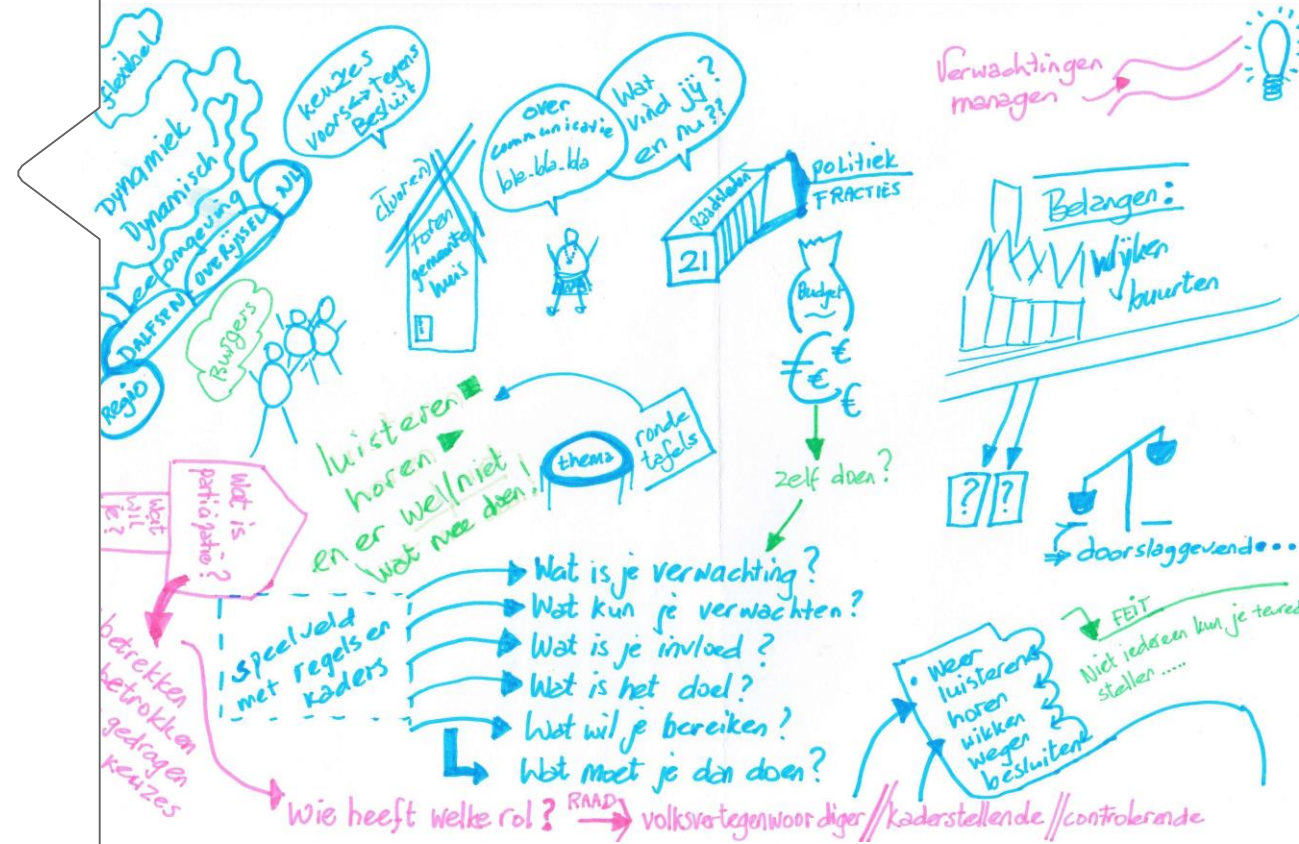 flexibel
Dynamiek
Dynamisch
Leefomgeving
NL
OVERIJSSEL
DALFSEN
Regio
Burgers
keuzes
voors ↔ tegens
Besluit
(Ivoren)
toren
gemeente
huis
over
communicatie
bla-bla-bla
Wat
vind jij?
en nu??
Raadsleden
21
POLITIEK
FRACTIES
Budget
€
€
€
€
zelf doen?
Verwachtingen
managen
Belangen:
Wijken
buurten
? ?
⇒ doorslaggevend...
luisteren
horen
en er wel/niet
wat mee doen!
thema
ronde
tafels
Wat is
participatie?
Wat
wil
je?
betrekken
betrokken
gedragen
keuzes
speelveld
met regels en
kaders
Wat is je verwachting?
Wat kun je verwachten?
Wat is je invloed?
Wat is het doel?
Wat wil je bereiken?
Wat moet je dan doen?
• Weer
luisteren
horen
wikken
wegen
besluiten
FEIT
Niet iedereen kun je tevred
stellen.....
Wie heeft welke rol? RAAD → volksvertegenwoordiger//kaderstellende//controlerende